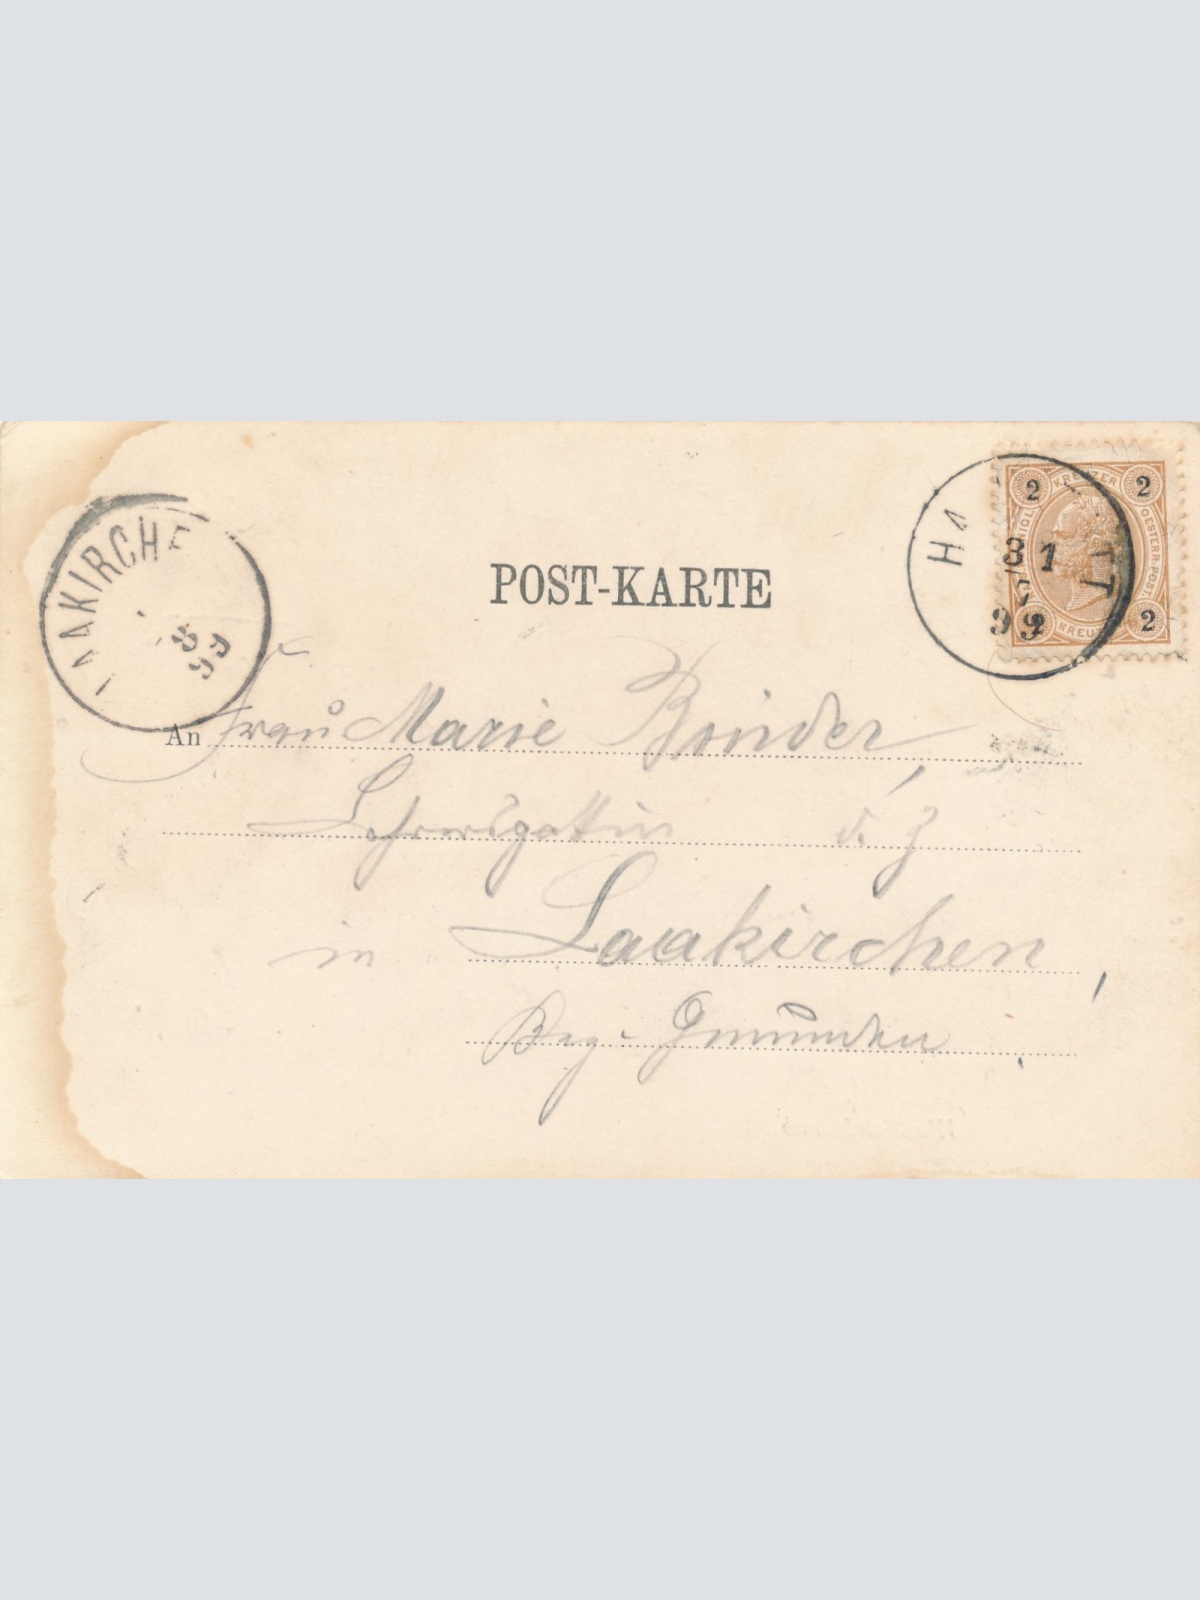 LAAKIRCHE
8
99
POST-KARTE
HA TT
31
7
99
2 KREUZER 2
OESTERR. POST.
2 2
An Frau Marie Binder,
Lehrersgattin d. Z
in Laakirchen,
Bez. Gmunden